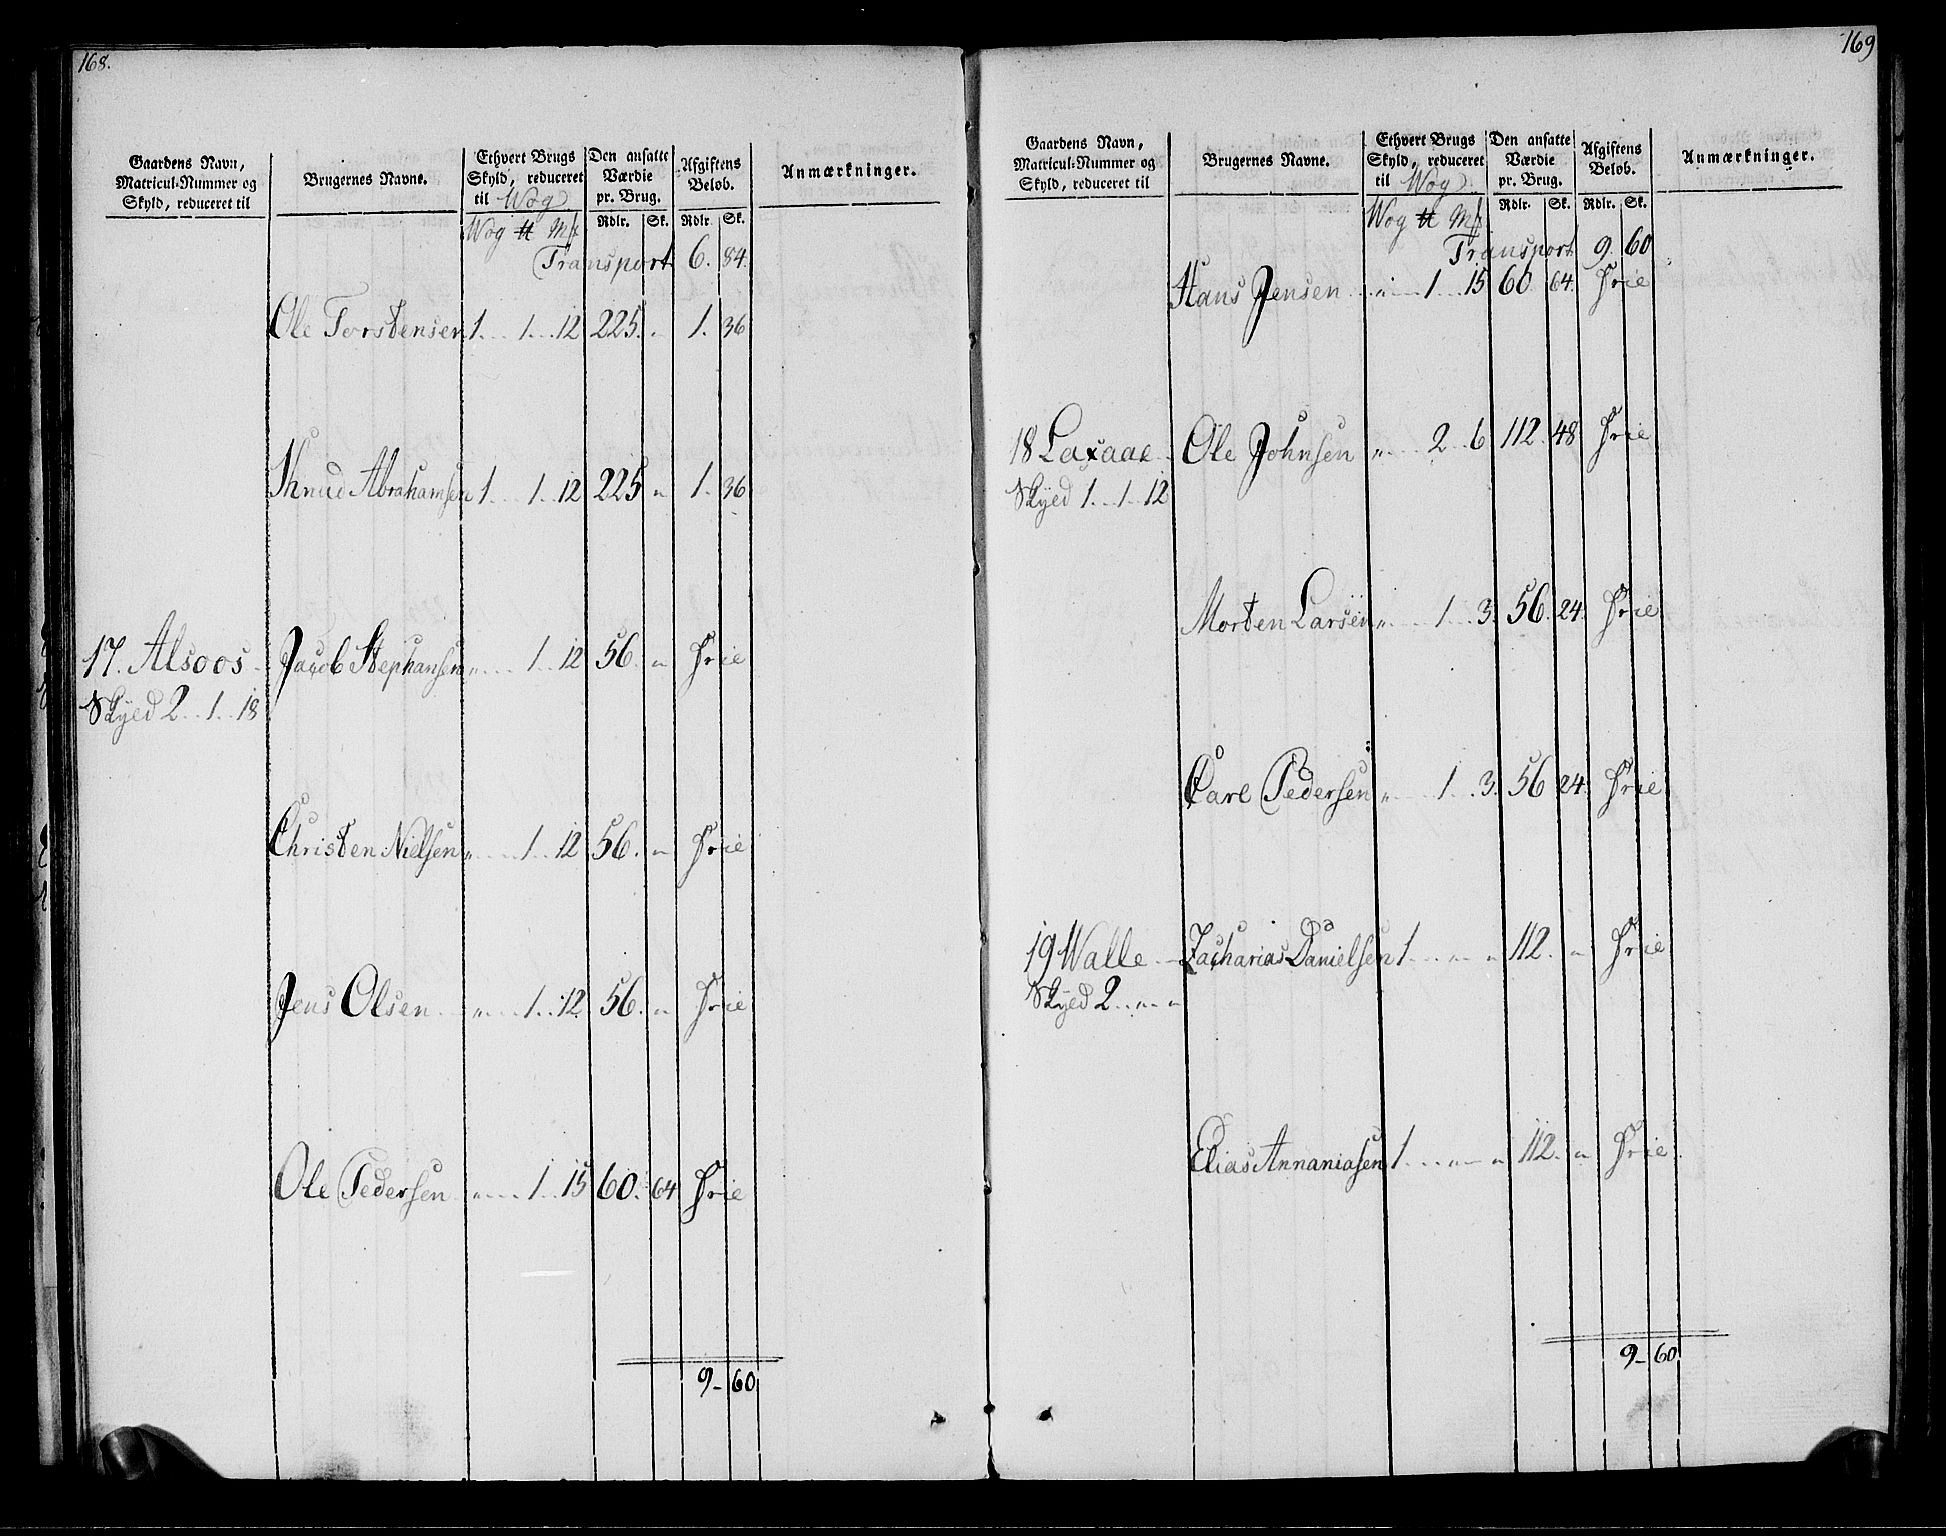 168.
Gaardens Navn, Matricul-Nummer og Skyld, reduceret til
Brugernes Navne.
Ethvert Brugs Skyld, reduceret til Wog
Den ansatte Værdie pr. Brug.
Afgiftens Belob.
Anmærkninger.
Wog ℔ Mk Rdlr. Sk. Rdlr. Sk.
Transport 6. 84.
Ole Torstensen 1 . . . 1 . . . 12 225. „ 1. 36
Knud Abrahamsen 1 . . . 1 . . 12 225 „ 1. 36
17. Alsoos Jacob Stephansen „ . . . 1 . . 12 56. „ Frie
Skyed 2 . . 1 . . 18
Christen Nielsen „ . . . 1 . . 12 56. „ Frie
Jens Olsen „ . . . 1 . . 12 56. „ Frie
Ole Pedersen „ . . . 1 . . 15 60. 64 Frie
9 – 60
169
Gaardens Navn, Matricul-Nummer og Skyld, reduceret til
Brugernes Navne.
Ethvert Brugs Skyld, reduceret til Wog
Den ansatte Værdie pr. Brug.
Afgiftens Belob.
Anmærkninger.
Wog ℔ Mk Rdlr. Sk. Rdlr. Sk.
Transport 9. 60
Hans Jensen „ . . . 1 . . . 15 60. 64. Frie
18 Laxaae Ole Johnsen „ . . . 2 . . 6 112. 48 Frie
Skyed 1 . . 1 . . 12
Morten Larsen „ . . . 1 . . 3. 56. 24. Frie
Carl Pedersen „ . . . 1 . . 3. 56 24. Frie
19 Walle Zacharias Danielsen 1 . . . „ „ 112. „ Frie
Skyed 2 . . „ . . „
Elias Annaniasen 1 . . . „ „ 112. „ Frie
9 – 60